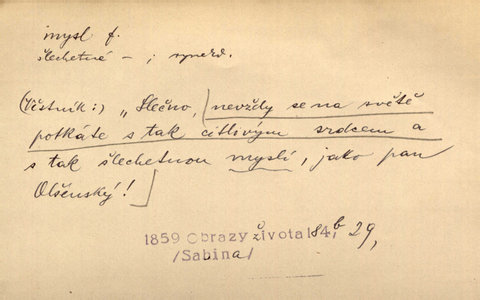 mysl f.
šlechetná – ;
(Věštník:) „Slečno, nevždy se na světě
potkáte s tak citlivým srdcem a
s tak šlechetnou myslí, jako pan
Olšenský!
1859 Obrazy života 184, b 29,
/Sabina/